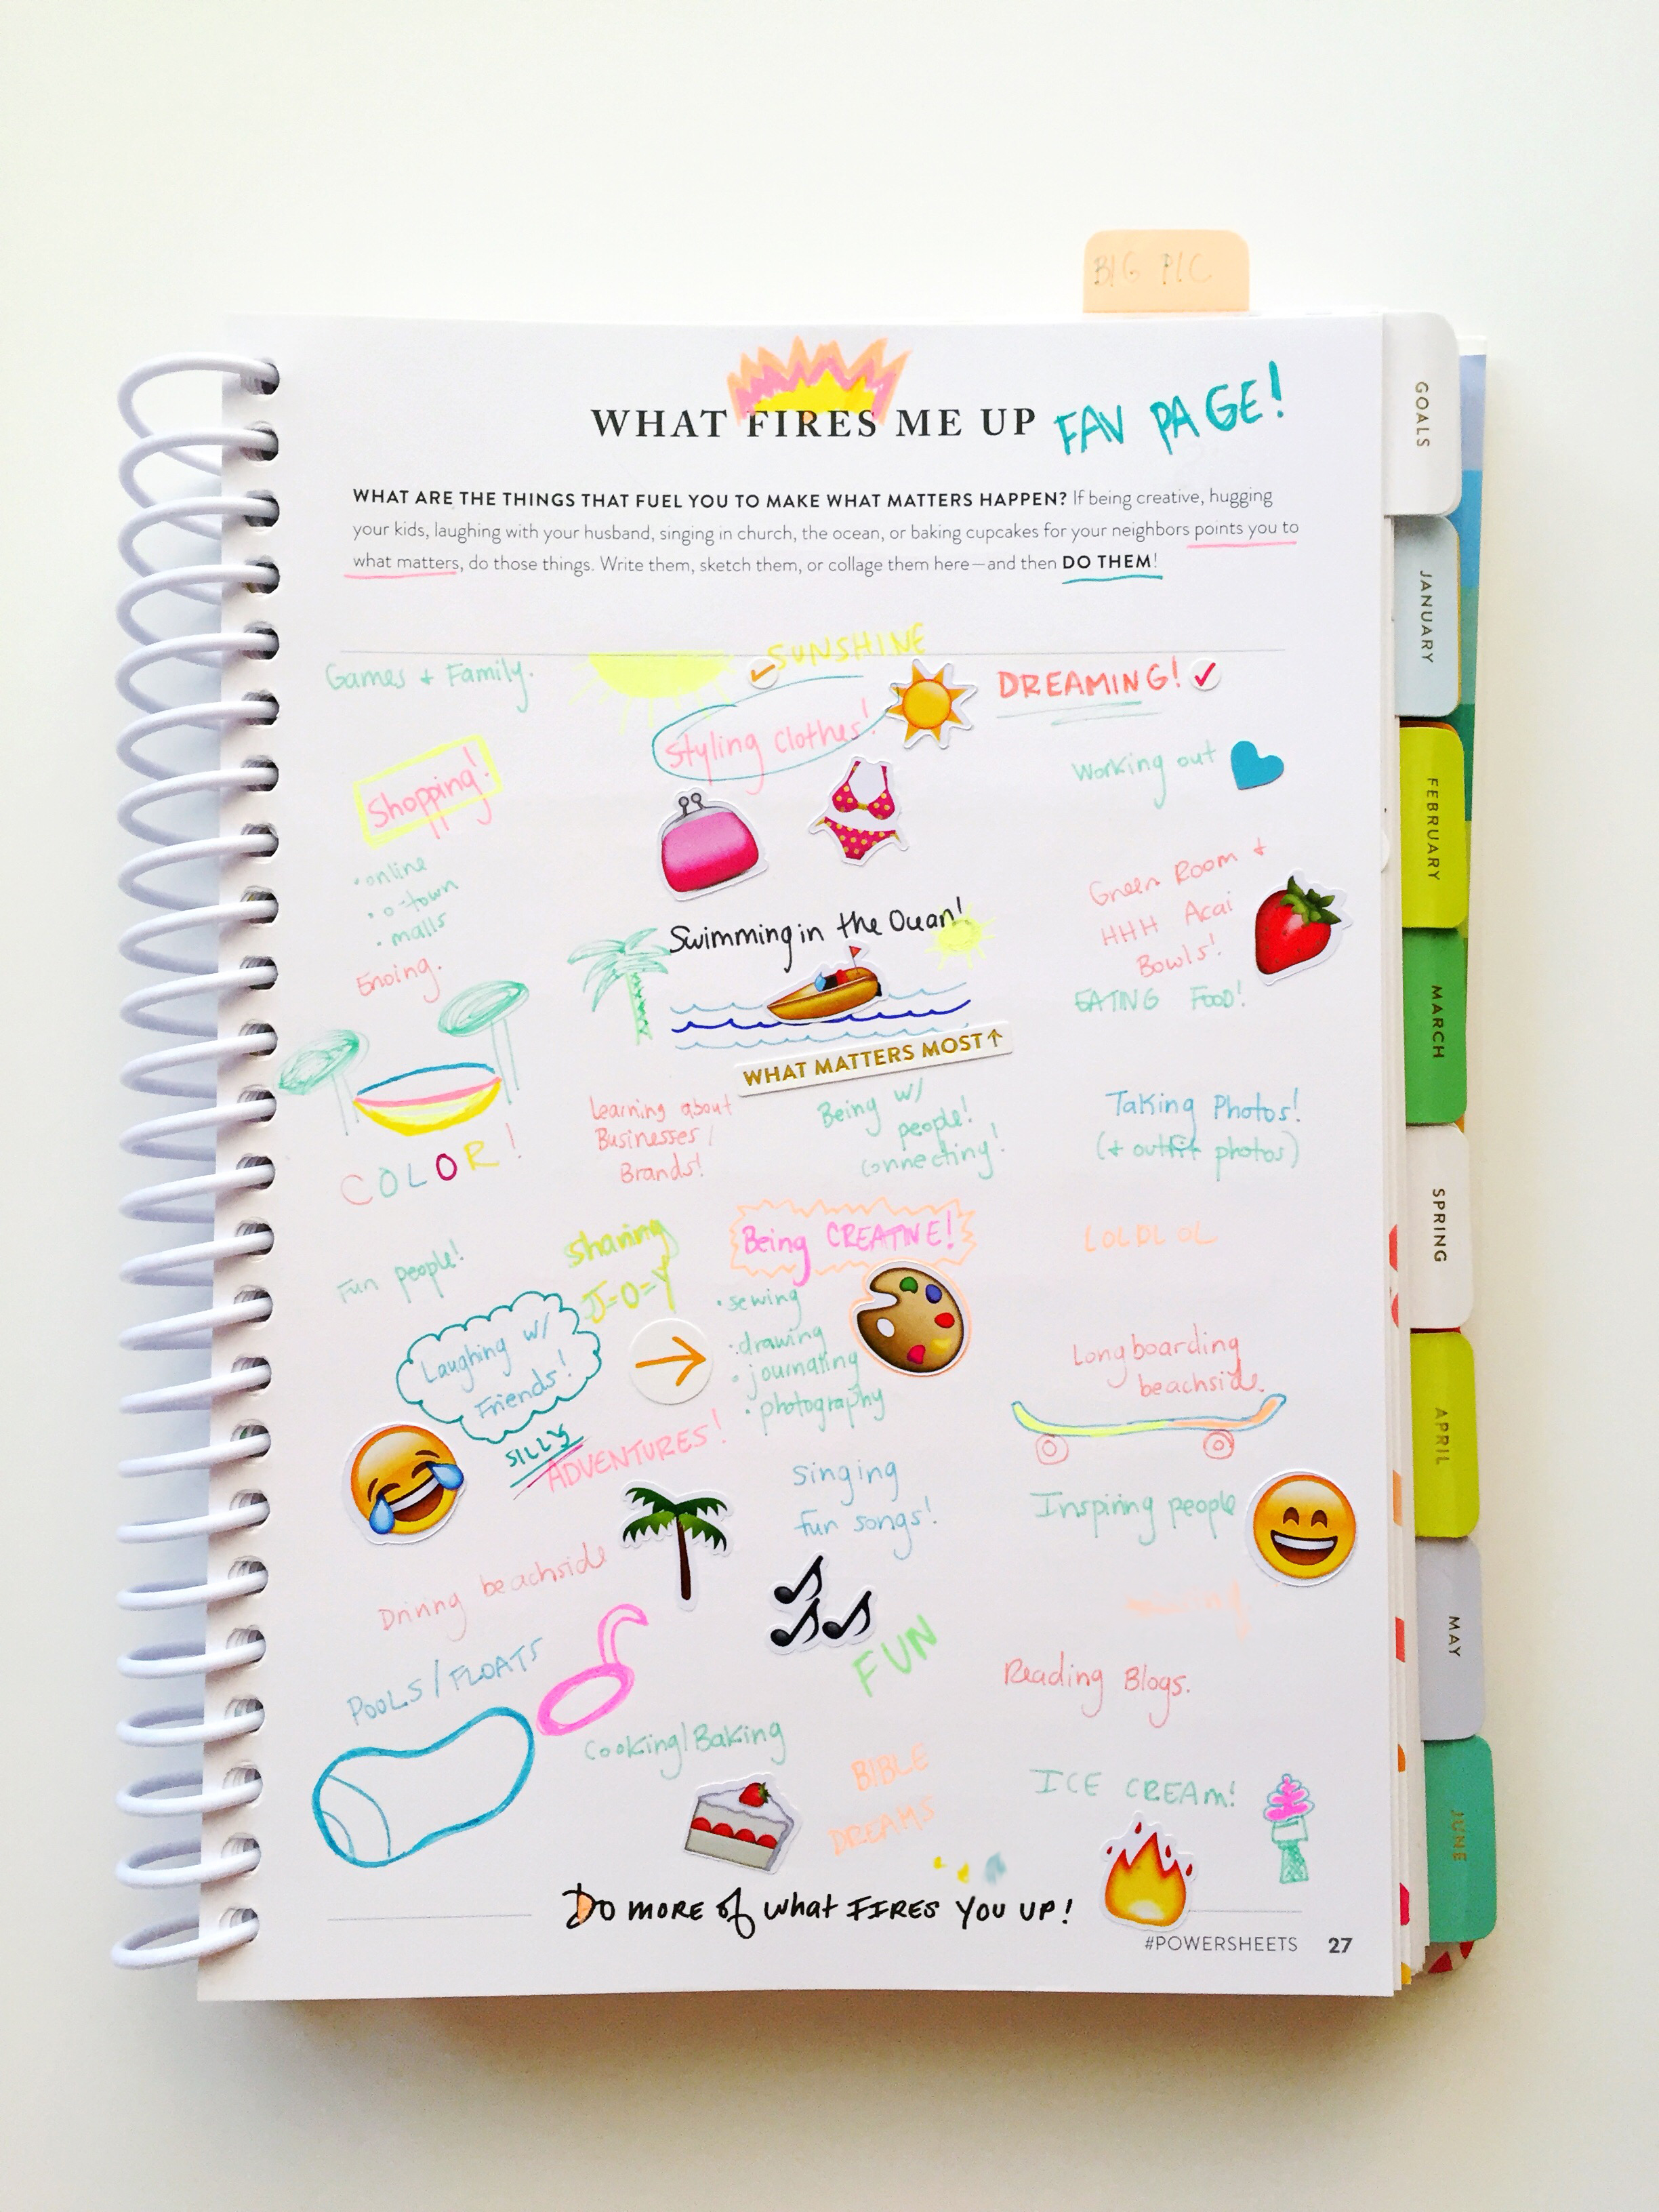 BIG PIC
WHAT FIRES ME UP
FAV PAGE!
WHAT ARE THE THINGS THAT FUEL YOU TO MAKE WHAT MATTERS HAPPEN? If being creative, hugging
your kids, laughing with your husband, singing in church, the ocean, or baking cupcakes for your neighbors points you to
what matters, do those things. Write them, sketch them, or collage them here—and then DO THEM!
Games + Family.
SUNSHINE
DREAMING!
Styling Clothes!
Working out
Shopping!
• online
• o-town
• malls
Swimming in the Ocean!
Green Room +
HHH Acai
Bowls!
EATING FOOD!
WHAT MATTERS MOST↑
COLOR!
Learning about
Businesses/
Brands!
Being w/
people!
connecting!
Taking Photos!
(+ outfit photos)
Fun people!
Sharing
J=O=Y
Being CREATIVE!
• sewing
• drawing
• journaling
• photography
LOLOLOL
Laughing w/
Friends!
SILLY
ADVENTURES!
Longboarding
beachside.
Singing
fun songs!
Inspiring people
Driving beachside
FUN
POOLS/FLOATS
Reading Blogs.
Cooking/Baking
BIBLE
DREAMS
ICE CREAM!
Do MORE of what FIRES YOU UP!
#POWERSHEETS 27
GOALS
JANUARY
FEBRUARY
MARCH
SPRING
APRIL
MAY
JUNE